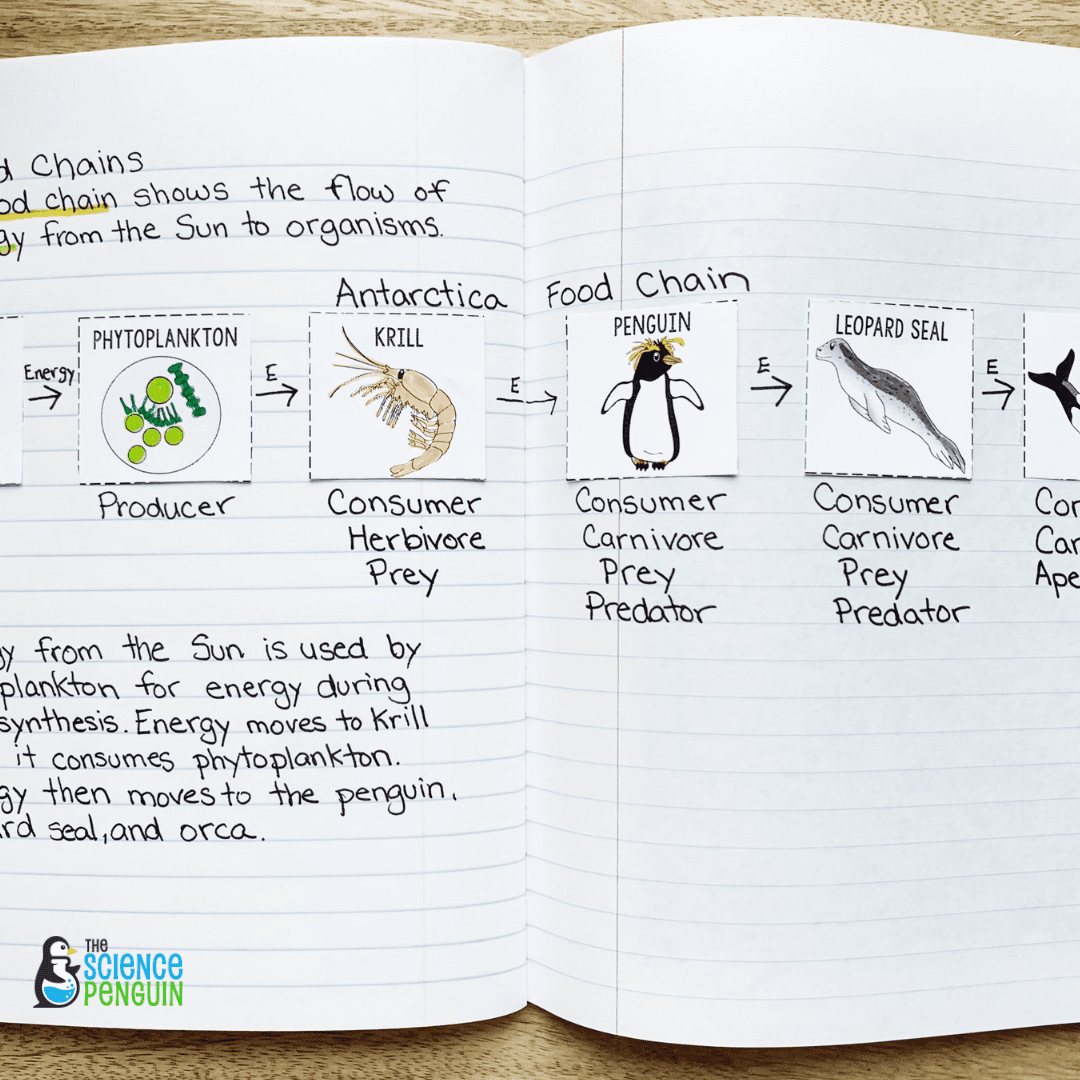 d Chains
od chain shows the flow of
gy from the Sun to organisms.
Antarctica Food Chain
Energy
PHYTOPLANKTON
E
KRILL
E
PENGUIN
E
LEOPARD SEAL
E
Producer
Consumer
Herbivore
Prey
Consumer
Carnivore
Prey
Predator
Consumer
Carnivore
Prey
Predator
Con
Car
Ape
gy from the Sun is used by
plankton for energy during
synthesis. Energy moves to krill
it consumes phytoplankton.
gy then moves to the penguin,
rd seal, and orca.
THE
SCIENCE
PENGUIN